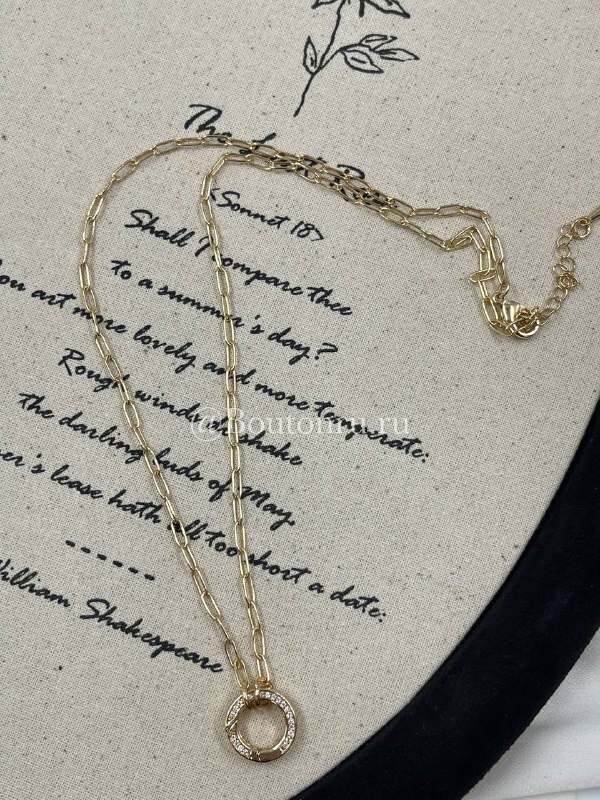 The
<Sonnet 18>
Shall I compare thee
to a summer's day?
ou art more lovely and more temperate:
Rough winds do shake
the darling buds of May,
er's lease hath all too short a date:
William Shakespeare
@Boutonru.ru